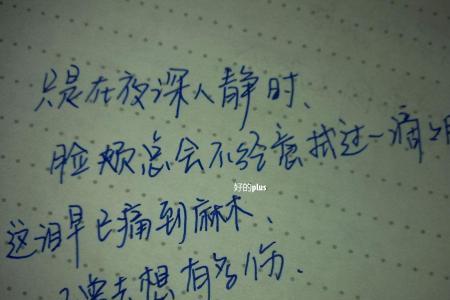 只是在夜深人静时、
脸颊总会不经意拭过一滴泪
好的plus
这泪早已痛到麻木、
去想有多伤.